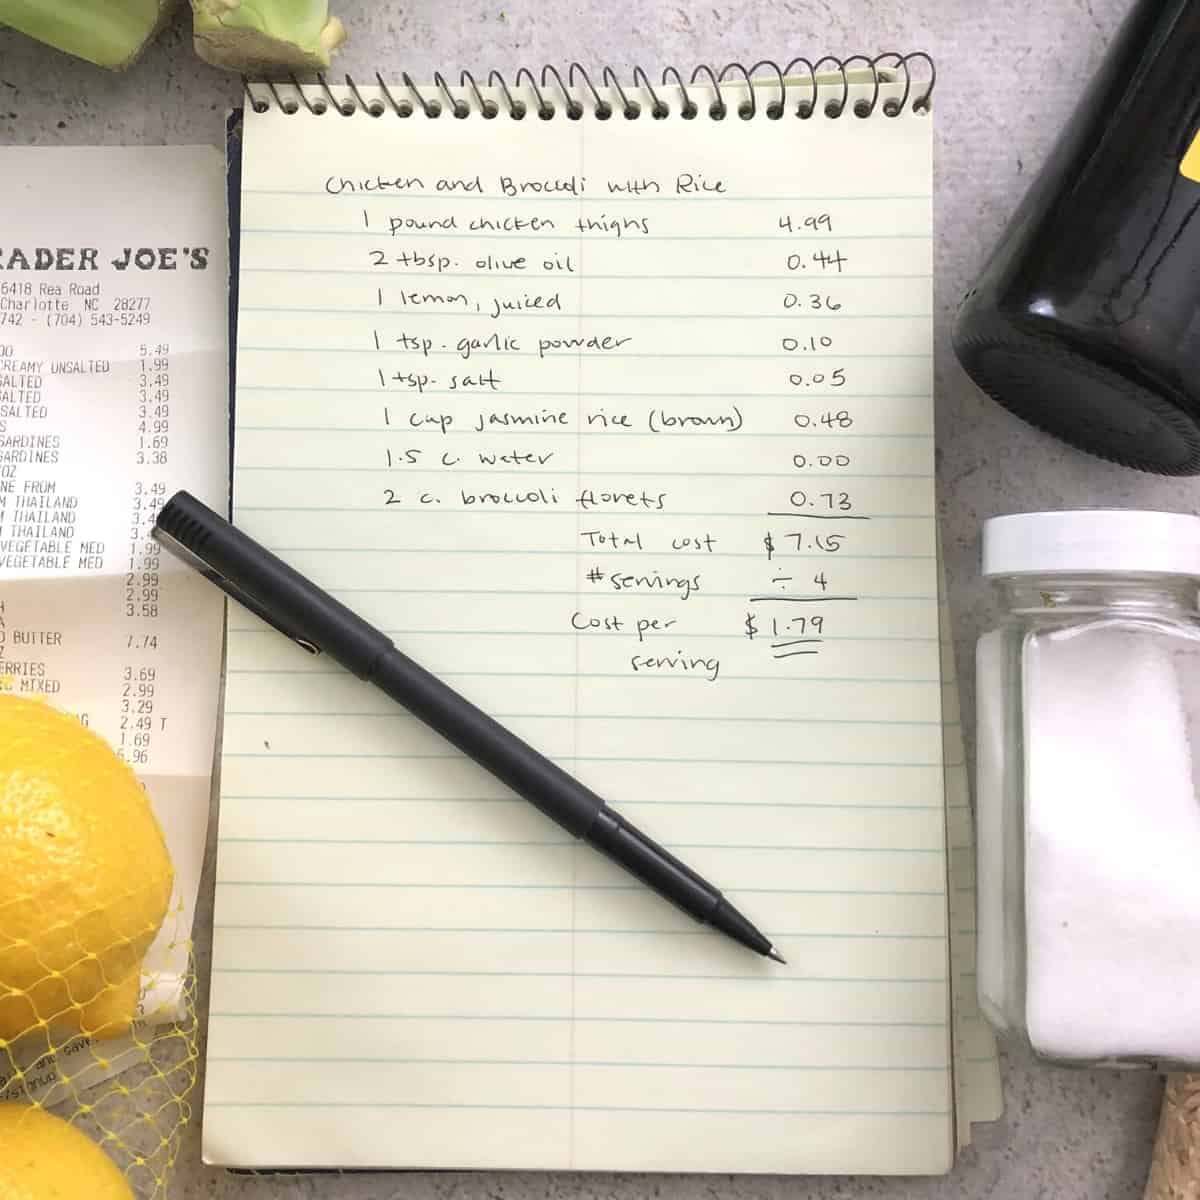 Chicken and Broccoli with Rice
1 pound chicken thighs 4.99
2 tbsp. olive oil 0.44
1 lemon, juiced 0.36
1 tsp. garlic powder 0.10
1 tsp. salt 0.05
1 cup jasmine rice (brown) 0.48
1.5 c. water 0.00
2 c. broccoli florets 0.73
Total cost $ 7.15
# servings ÷ 4
Cost per $ 1.79
serving
RADER JOE'S
6418 Rea Road
Charlotte NC 28277
742 - (704) 543-5249
OO 5.49
CREAMY UNSALTED 1.99
SALTED 3.49
SALTED 3.49
SALTED 3.49
S 4.99
SARDINES 1.69
SARDINES 3.38
OZ
NE FROM 3.49
M THAILAND 3.49
M THAILAND 3.4
THAILAND 3.
VEGETABLE MED 1.99
VEGETABLE MED 1.99
2.99
2.99
H 3.58
A
D BUTTER 7.74
Z
ERRIES 3.69
MIXED 2.99
3.29
AG 2.49 T
1.69
6.96
and save
/signup